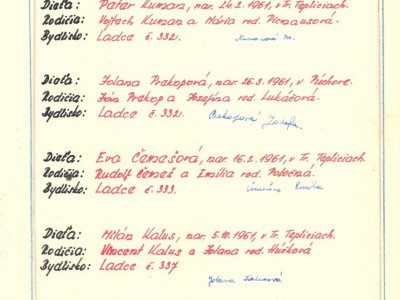 Dieťa: Peter Kuman, nar. 24.2. 1961, v Tr. Tepliciach.
Rodičia: Vojtech Kuman a Mária rod.
Bydlisko: Ladce č. 332.
Dieťa: Jolana Prekopová, nar. 26.3. 1961, v Púchove.
Rodičia: Ján Prekop a Jozefína rod. Lukáčová.
Bydlisko: Ladce č. 332. Prekopová Jozefa
Dieťa: Eva Čemešová, nar. 16.2. 1961, v Tr. Tepliciach.
Rodičia: Rudolf Čemeš a Emília rod. Potočná.
Bydlisko: Ladce č. 333.
Dieťa: Milán Kalus, nar. 5.10. 1961, v Tr. Tepliciach.
Rodičia: Vincent Kalus a Jolana rod. Húčková
Bydlisko: Ladce č. 337